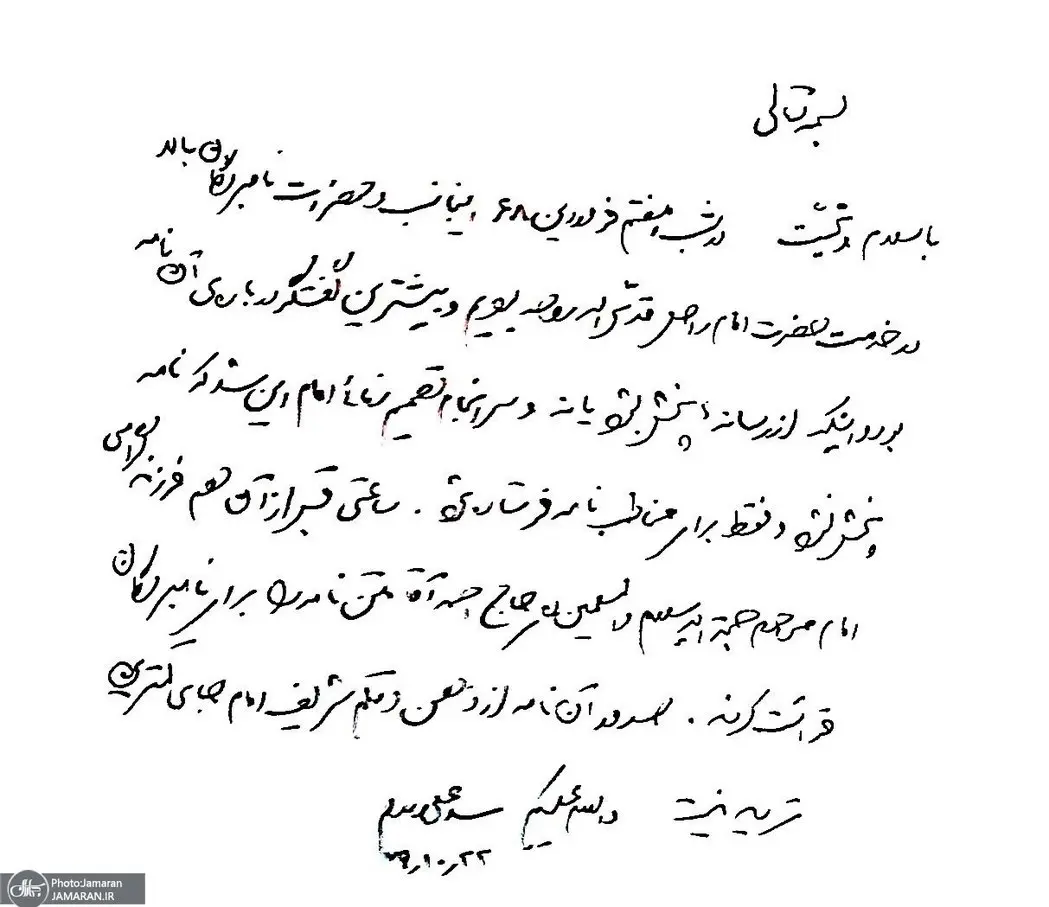 بسمه تعالی
با سلام و تحیّت در شب هفتم فروردین ۶۸ اینجانب و حضرات نامبردگان بالا
در خدمت حضرت امام راحل قدّس الله روحه بودیم و بیشترین گفتگو درباره‌ی آن نامه
بود و اینکه از رسانه پخش بشود یا نه و سرانجام تصمیم امام این شد که نامه
پخش نشود و فقط برای مخاطب نامه فرستاده شود. ساعتی قبل از آن هم فرزند گرامی
امام مرحوم حجة الاسلام والمسلمین حاج احمد آقا متن نامه را برای نامبردگان
قرائت کردند. صدور آن نامه از ذهن و قلم شریف امام جای کمترین
تردید نیست والسلام علیکم سیدعلی
۷۹٫۱۰٫۲۲
Photo:Jamaran
JAMARAN.IR